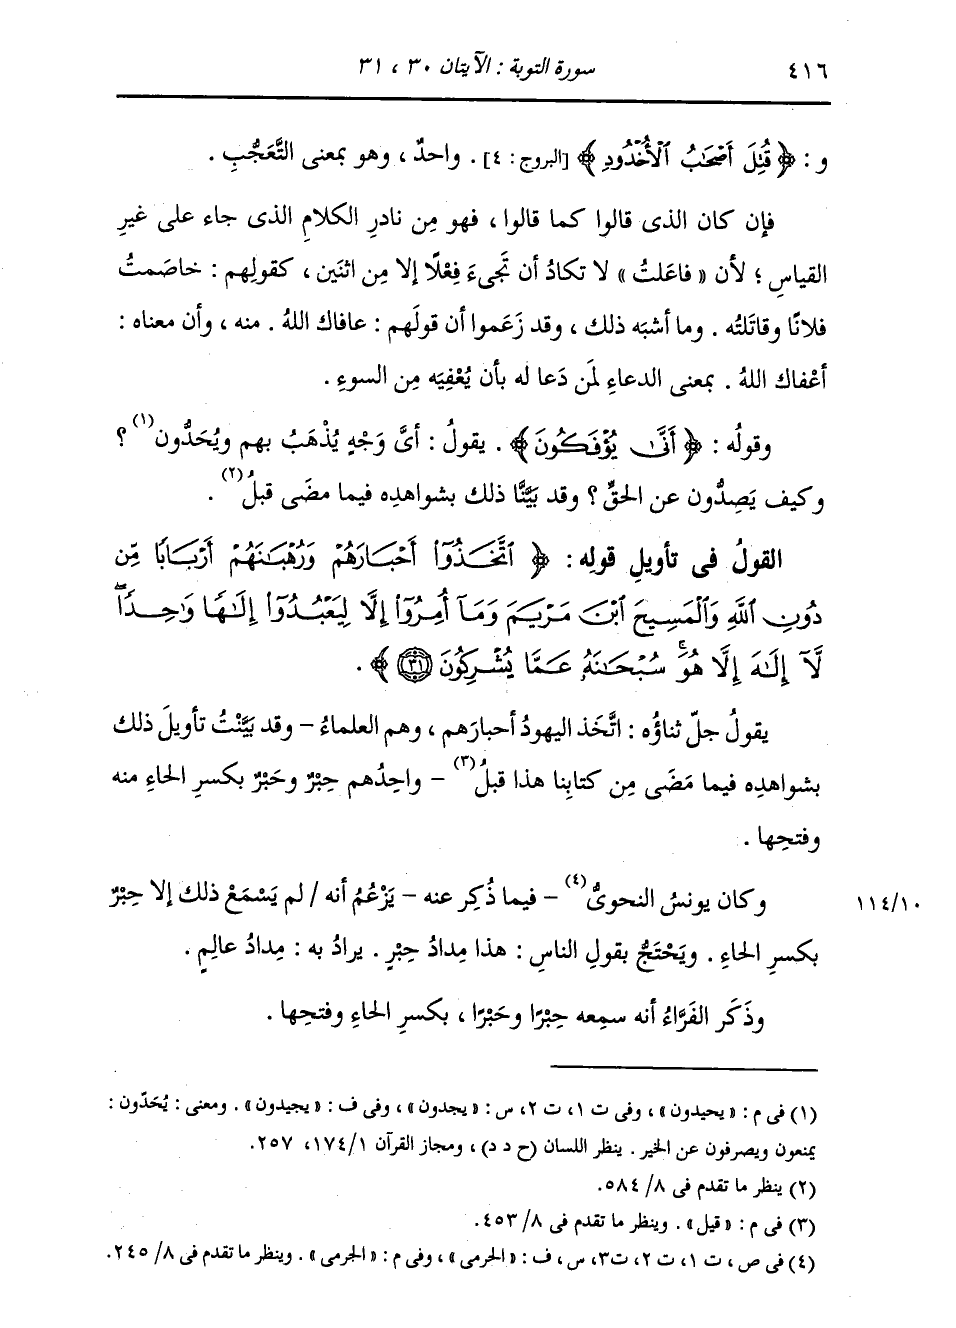 ٤١٦ سورة التوبة : الآيتان ٣٠ ، ٣١
و : ﴿ قُتِلَ أَصْحَٰبُ ٱلْأُخْدُودِ ﴾ [البروج : ٤] . واحدٌ ، وهو بمعنى التَّعَجُّبِ .
فإن كان الذى قالوا كما قالوا ، فهو مِن نادرِ الكلامِ الذى جاء على غيرِ
القياسِ ؛ لأن « فاعَلتُ » لا تكادُ أن تَجِىءَ فِعْلًا إلا مِن اثنَين ، كقولِهم : خاصَمتُ
فلانًا وقاتَلتُه . وما أشبَه ذلك ، وقد زَعَموا أن قولَهم : عافاك اللهُ . منه ، وأن معناه :
أعْفاك اللهُ . بمعنى الدعاءِ لمَن دَعا له بأن يُعْفِيَه مِن السوءِ .
وقولُه : ﴿ أَنَّىٰ يُؤْفَكُونَ ﴾ . يقولُ : أىَّ وَجْهٍ يُذْهَبُ بهم ويُحَدُّون (١) ؟
وكيف يَصِدُّون عن الحقِّ ؟ وقد بَيَّنَّا ذلك بشواهدِه فيما مضَى قبلُ (٢) .
القولُ فى تأويلِ قولِه : ﴿ ٱتَّخَذُوٓا۟ أَحْبَارَهُمْ وَرُهْبَٰنَهُمْ أَرْبَابًا مِّن
دُونِ ٱللَّهِ وَٱلْمَسِيحَ ٱبْنَ مَرْيَمَ وَمَآ أُمِرُوٓا۟ إِلَّا لِيَعْبُدُوٓا۟ إِلَٰهًا وَٰحِدًا ۖ
لَّآ إِلَٰهَ إِلَّا هُوَ ۚ سُبْحَٰنَهُۥ عَمَّا يُشْرِكُونَ ٣١ ﴾ .
يقولُ جلّ ثناؤُه : اتَّخَذ اليهودُ أحبارَهم ، وهم العلماءُ – وقد بَيَّنْتُ تأويلَ ذلك
بشواهدِه فيما مَضَى مِن كتابِنا هذا قبلُ (٣) – واحِدُهم حِبْرٌ وحَبْرٌ بكسرِ الحاءِ منه
وفتحِها .
وكان يونسُ النحوىُّ (٤) – فيما ذُكِر عنه – يَزْعُمُ أنه / لم يَسْمَعْ ذلك إلا حِبْرٌ ١١٤/١٠
بكسرِ الحاءِ . ويَحْتَجُّ بقولِ الناسِ : هذا مِدادُ حِبْرٍ . يرادُ به : مِدادُ عالِمٍ .
وذَكَر الفَرَّاءُ أنه سمِعه حِبْرًا وحَبْرًا ، بكسرِ الحاءِ وفتحِها .
(١) فى م : « يحيدون » ، وفى ت ١، ت ٢، س : « يجدون » ، وفى ف : « يجيدون » . ومعنى : يُحَدّون :
يمنعون ويصرفون عن الخير . ينظر اللسان (ح د د) ، ومجاز القرآن ١/ ١٧٤، ٢٥٧ .
(٢) ينظر ما تقدم فى ٨/ ٥٨٤.
(٣) فى م : « قيل » . وينظر ما تقدم فى ٨/ ٤٥٣.
(٤) فى ص ، ت ١، ت ٢، ت٣، س ، ف : « الحرمى » ، وفى م : « الجرمى » . وينظر ما تقدم فى ٨/ ٢٤٥.